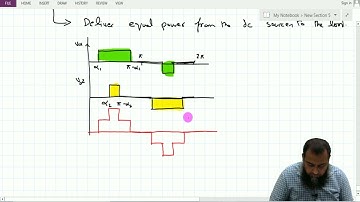 FILE
INSERT
DRAW
HISTORY
REVIEW
VIEW
My Notebook » New Section 5
↳ Deliver equal power from the dc sources to the load.
α₁ π-α₁ π 2π
α₂ π-α₂